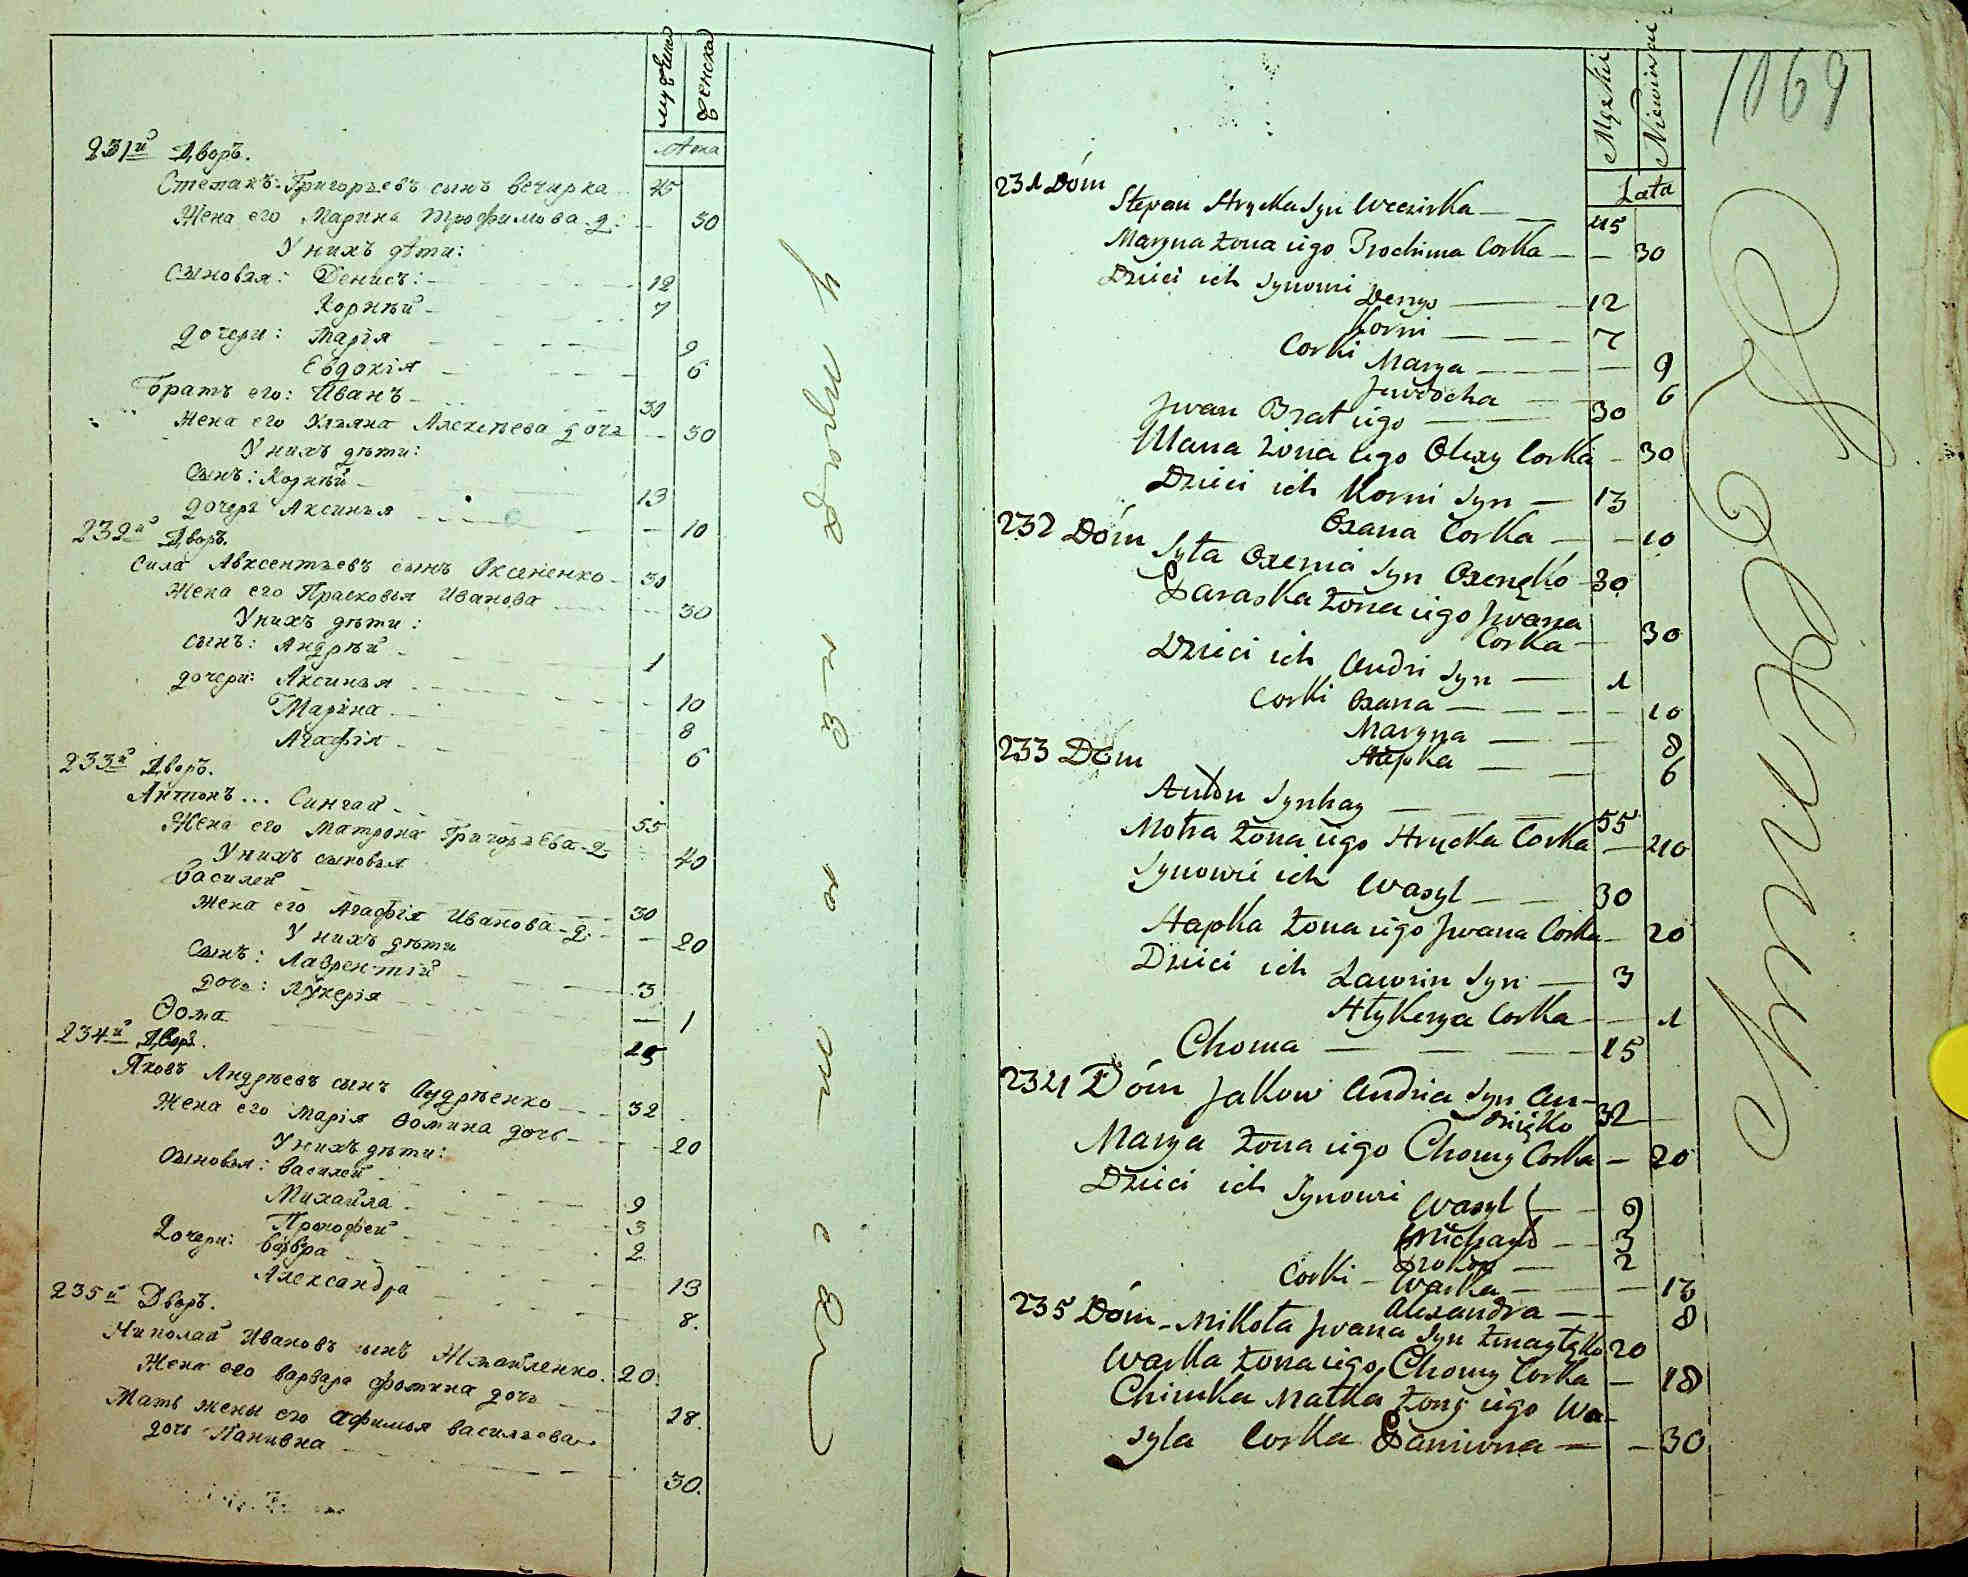 мужеска
женска
лѣта
231й Дворъ.
Степанъ Григорьевъ сынъ Вечирка 45
Жена его Марина Трофимова д: 30
У нихъ дѣти:
Сыновья: Денисъ: 12
Корнѣй 7
дочери: Марія 9
Евдокія 6
Братъ его: Иванъ 30
Жена его Ульяна Алексѣева дочь 30
У нихъ дѣти:
Сынъ: Корнѣй 13
дочерь Аксинья 10
232й Дворъ.
Сила Авксентьевъ сынъ Оксененко 30
Жена его Прасковья Иванова 30
У нихъ дѣти:
сынъ: Андрѣй 1
дочери: Аксинья 10
Марина 8
Агафія 6
233й Дворъ.
Антонъ... Сингай 55
Жена его Матрона Григорьева д 40
У нихъ сыновья
Василей 30
Жена его Агафія Иванова д 20
У нихъ дѣти
Сынъ: Лаврентій 3
дочь: Лукерія 1
Ѳома 15
234й Дворъ.
Яковъ Андрѣевъ сынъ Андрѣенко 32
Жена его Марія Ѳомина дочь 20
У нихъ дѣти:
Сыновья: Василей 9
Михайла 3
Прокофей 2
Дочери: Варвара 13
Александра 8.
235й Дворъ.
Николай Ивановъ сынъ Жмайленко. 20
Жена его Варвара Фомина дочь 18.
Мать жены его Афимья Васильева
дочь Панивна 30.
Męzkie
Niewieście
Lata
1069
231 Dóm
Stepan Hrycka Syn Weczirka 45
Maryna żona iego Trochima Corka 30
Dzieci ich Synowie Denys 12
Korni 7
Corki Marya 9
Juwdocha 6
Jwan Brat iego 30
Ulana żona iego Olexy Corka 30
Dzieci ich Korni Syn 13
Oxana Corka 10
232 Dóm Syła Oxenia Syn Oxenęko 30
Paraska żona iego Jwana
Corka 30
Dzieci ich Andri Syn 1
Corki Oxana 10
Maryna 8
Hapka 6
233 Dóm
Anton Synhay 55
Motra żona iego Hrycka Corka 40
Synowie ich Wasyl 30
Hapka żona iego Jwana Corka 20
Dzieci ich Ławrin Syn 3
Hłykerya Corka 1
Choma 15
234 Dóm Jakow Andria Syn An-
drięko 32
Marya żona iego Chomy Corka 20
Dzieci ich Synowie Wasyl 9
Michayło 3
Prokop 2
Corki Warka 13
Alexandra 8
235 Dóm Mikoła Jwana Syn Żmayłęko 20
Warka żona iego Chomy Corka 18
Chimka Matka żony iego Wa-
syla Corka Paniwna 30